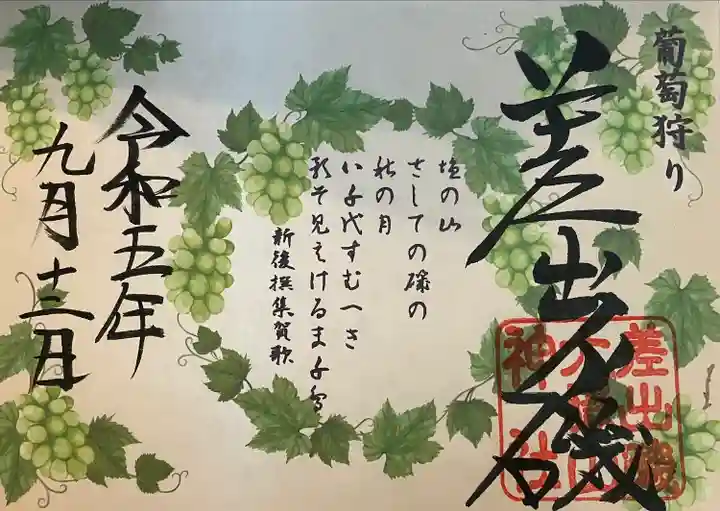 葡萄狩り
差出乃磯
差出磯
大嶽山
神社
塩の山
さしての磯の
秋の月
八千代すむへき
影そ見えけるま千鳥
新後撰集賀歌
令和五年
九月十三日